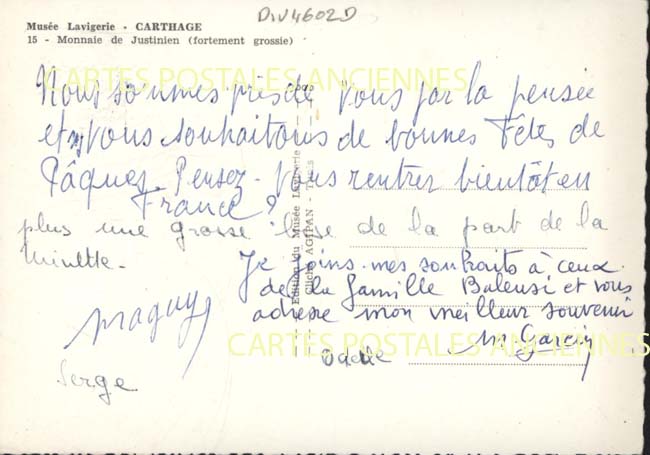 DIV4602D
Musée Lavigerie - CARTHAGE
15 - Monnaie de Justinien (fortement grossie)
CARTES POSTALES ANCIENNES
Nous sommes près de vous par la pensée
et vous souhaitons de bonnes Fêtes de
Pâques. Pensez-vous rentrer bientôt en
France?
plus une grosse bise de la part de la
Minette.
Je joins mes souhaits à ceux
de la famille Balensi et vous
adresse mon meilleur souvenir
Maguy
M Garcin
CARTES POSTALES ANCIENNES
Odette
Serge
Edition du Musée Lavigerie
Cliché AGIPAN - Tunis